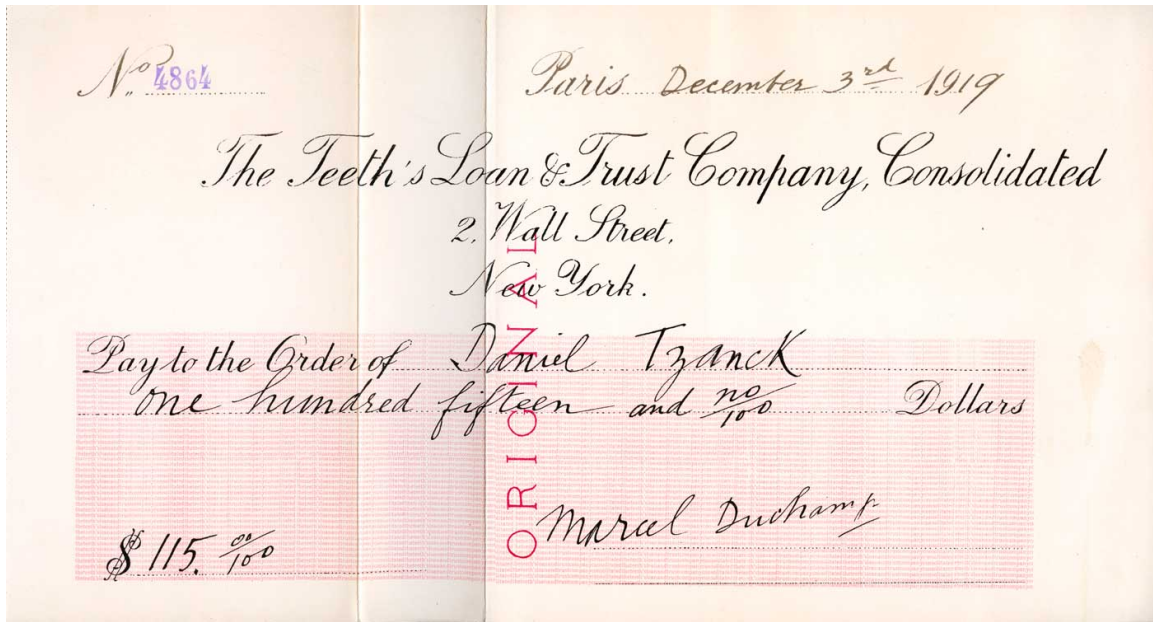 No. 4864
Paris December 3rd 1919
The Teeth's Loan & Trust Company, Consolidated
2, Wall Street,
New York.
Pay to the Order of Daniel Tzanck
one hundred fifteen and no/100 Dollars
ORIGINAL
Marcel Duchamp
$ 115. 00/100